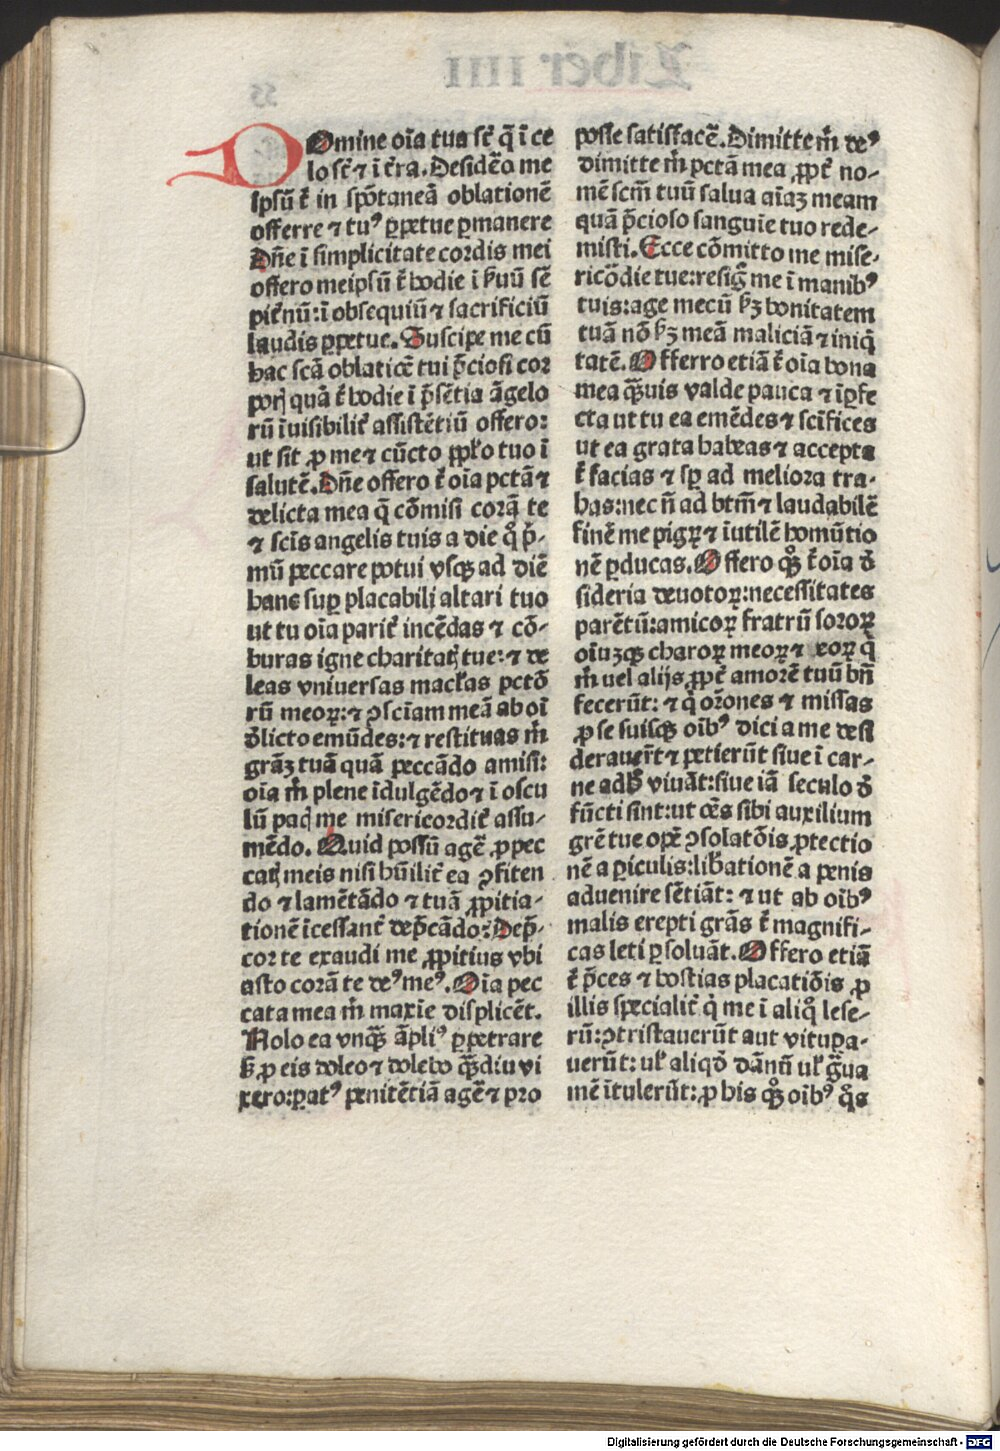 DOmine oı̄a tua sūt q̄ ī ce
lo sūt ⁊ ī t̄ra. Desidēo me
ipsū t̄ in spōtaneā oblationē
offerre ⁊ tuꝰ ꝑpetue ꝑmanere
Dn̄e ī simplicitate cordis mei
offero meipsū t̄ hodie ī ẜuū sē
pit̄nū: ī obsequiū ⁊ sacrificiū
laudis ꝑpetue. Suscipe me cū
hac scā oblatiōe tui p̄ciosi cor
poris quā t̄ hodie ī p̄sētia āgelo
rū īuisibilit̄ assistētiū offero:
ut sit ꝓ me ⁊ cūcto ppl̄o tuo ī
salutē. Dn̄e offero t̄ oı̄a pctā ⁊
delicta mea q̄ cōmisi corā te
⁊ scīs angelis tuis a die qͦ p̄-
mū peccare potui vsqꝫ ad diē
hanc suꝑ placabili altari tuo
ut tu oı̄a parit̄ incēdas ⁊ cō-
buras igne charitatis tue: ⁊ de
leas vniuersas macl̄as pctō
rū meoꝝ: ⁊ ꝯsciā́m meā ab oī
dlicto emūdes: ⁊ restituas m̄
grāꝫ tuā quā peccādo amisi:
oı̄a m̄ plene īdulgēdo ⁊ ī oscu
lū pacis me misericordit̄ assu-
mēdo. Quid possū agē ꝓ pec
catis meis nisi hūilit̄ ea ꝯfiten
do ⁊ lamētādo ⁊ tuā ꝓpitia-
tionē īcessant̄ dep̄cādo? Dep̄-
cor te exaudi me ꝓpitius vbi
asto corā te deꝰ meꝰ. Oı̄a pec
cata mea m̄ maxīe displicēt.
Nolo ea vnqꝫ āpliꝰ ꝑpetrare
ẜ ꝓ eis doleo ⁊ dolebo qꝫdiu vi
xero: ꝑatꝰ penitētiā agē ⁊ pro
posse satisfacē. Dimitte m̄ deꝰ
dimitte m̄ pctā mea ꝓpt̄ no-
mē scm̄ tuū salua aı̄aꝫ meam
quā p̄cioso sanguīe tuo rede-
misti. Ecce cōmitto me mise-
ricōdie tue: resigͦ me ī manibꝰ
tuis: age mecū ẜꝫ bonitatem
tuā nō ẜꝫ meā maliciā ⁊ iniq̄
tatē. Offerro etiā t̄ oı̄a bona
mea qꝫuis valde pauca ⁊ īꝑfe
cta ut tu ea emēdes ⁊ scīfices
ut ea grata habeas ⁊ accepta
t̄ facias ⁊ sꝑ ad meliora tra-
has: nec n̄ ad btm̄ ⁊ laudabilē
finē me pigꝝ ⁊ īutilē homūtio
nē ꝑducas. Offero qꝫ t̄ oı̄a d̄
sideria deuotoꝝ: necessitates
parētū: amicoꝝ fratrū soroꝝ
oīuꝫqꝫ charoꝝ meoꝝ ⁊ eoꝝ q̄
m̄ uel alijs ꝓpt̄ amorē tuū bn̄
fecerūt: ⁊ q̄ or̄ones ⁊ missas
ꝓ se suisqꝫ oībꝰ dici a me desi
derauer̄t ⁊ petierūt siue ī car-
ne adhͨ viuāt: siue iā seculo d̄
fūcti sint: ut oēs sibi auxilium
grē tue opē ꝯsolatōis ꝓtectio
nē a ꝑiculis: lib̄ationē a penis
aduenire sētiāt: ⁊ ut ab oībꝰ
malis erepti grās t̄ magnifi-
cas leti ꝑsoluāt. Offero etiā
t̄ p̄ces ⁊ hostias placatiōis ꝓ
illis specialit̄ q̄ me ī aliqͦ lese-
rū: ꝯtristauerūt aut vituꝑa-
uerūt: ul̄ aliqd̄ dān̄ū ul̄ g̊ua
mē ītulerūt: ꝓ his qꝫ oībꝰ q̊s
Digitalisierung gefördert durch die Deutsche Forschungsgemeinschaft - DFG